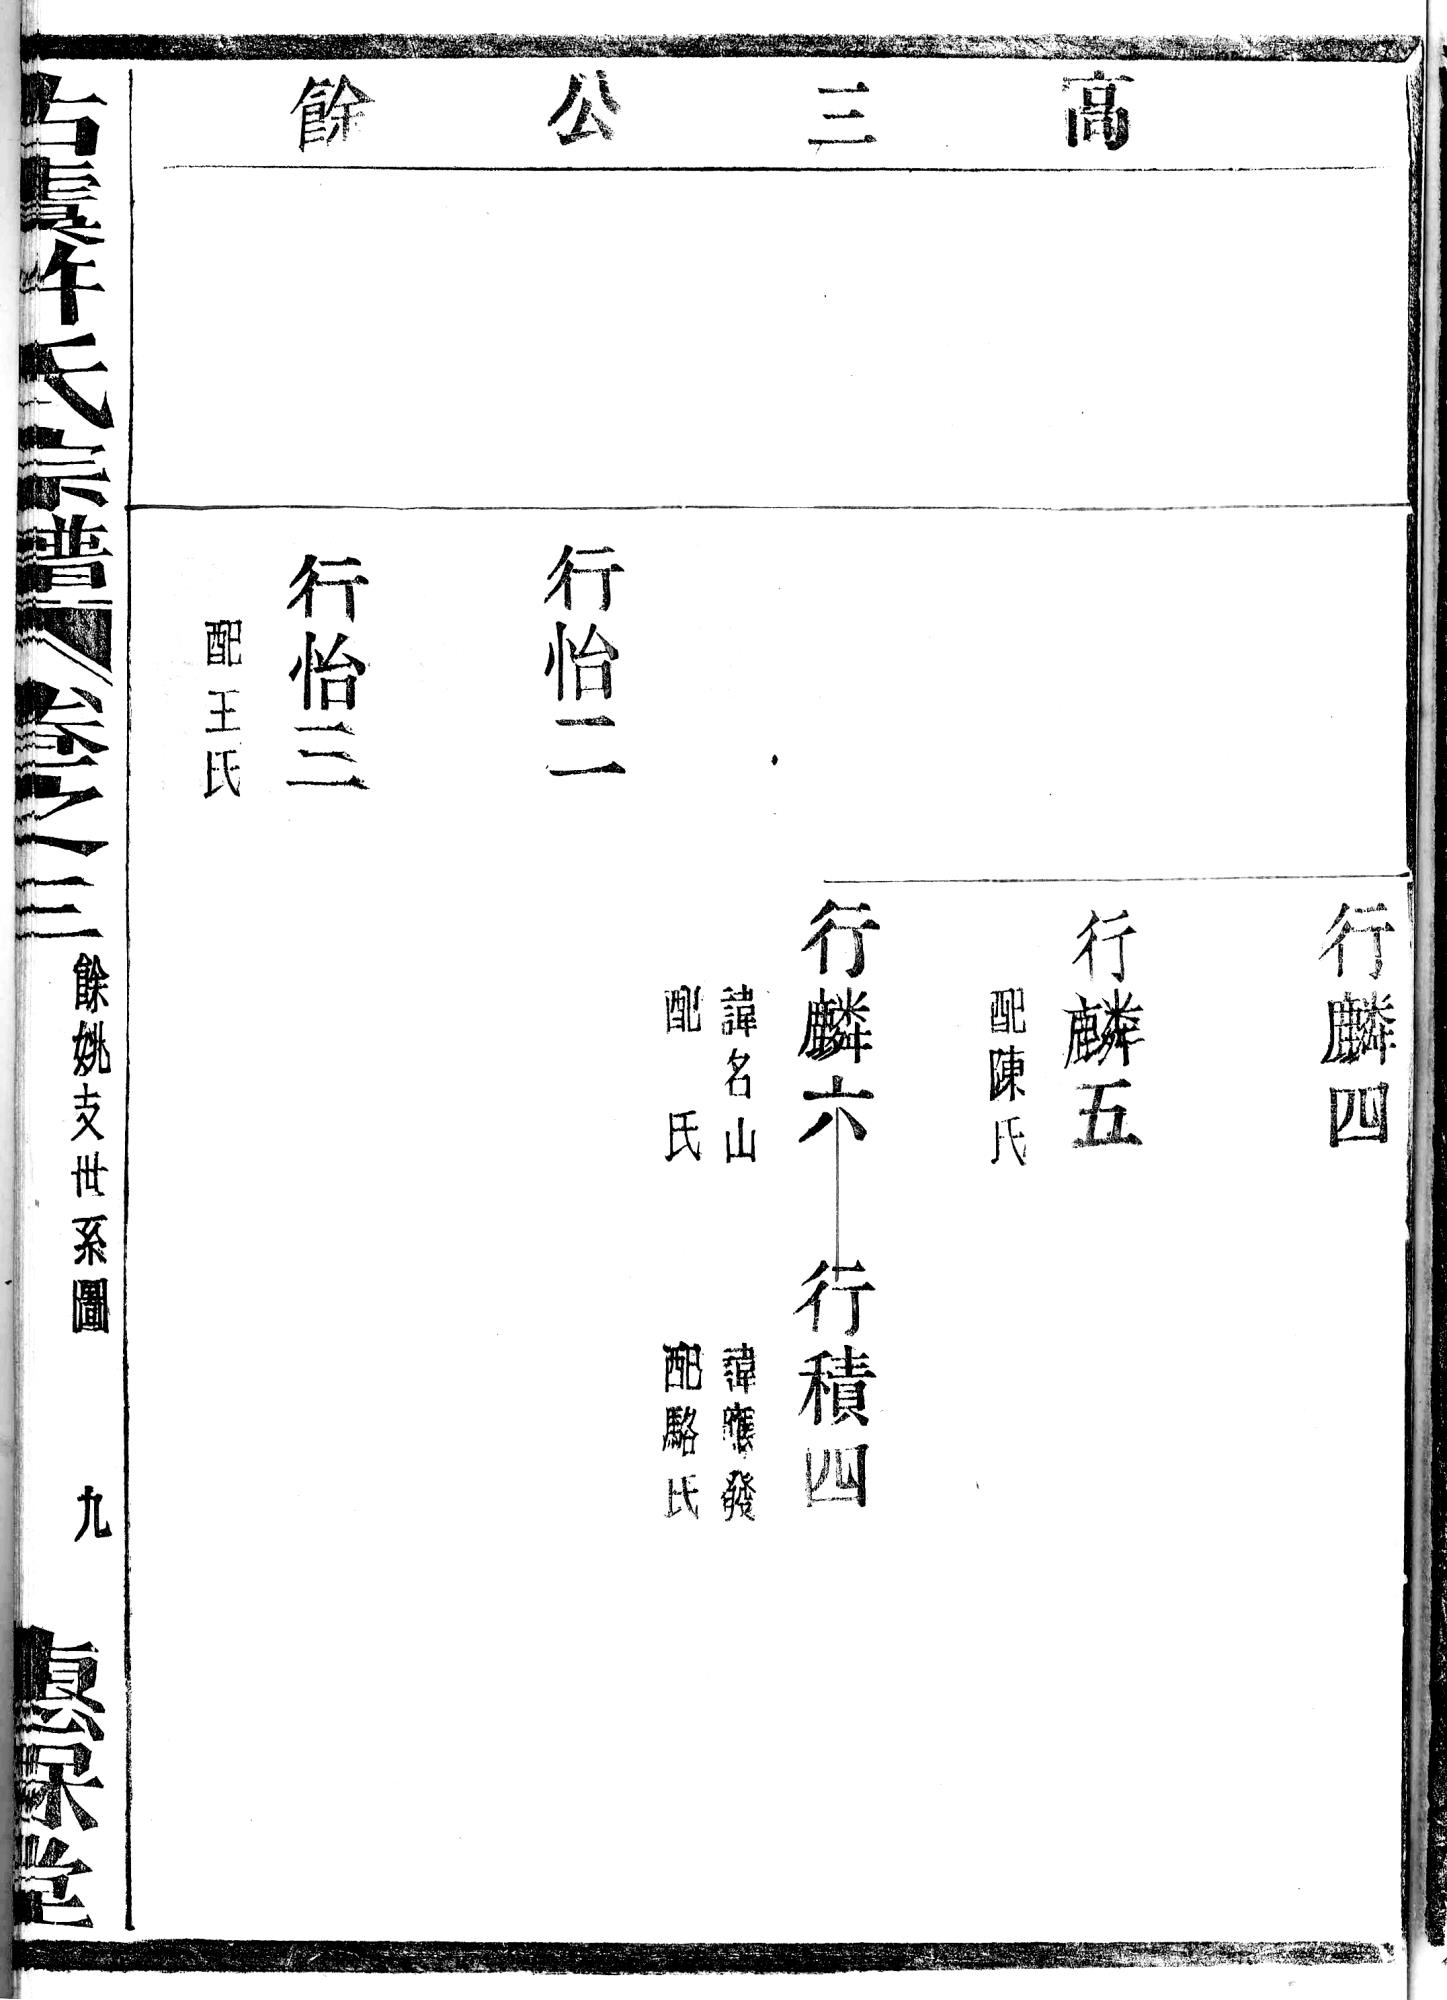 高三公餘
行麟四
行麟五
配陳氏
行麟六
諱名山
配　氏
行積四
諱應發
配駱氏
行怡二
行怡三
配王氏
古虞許氏宗譜
卷之三
餘姚支世系圖
九
堂